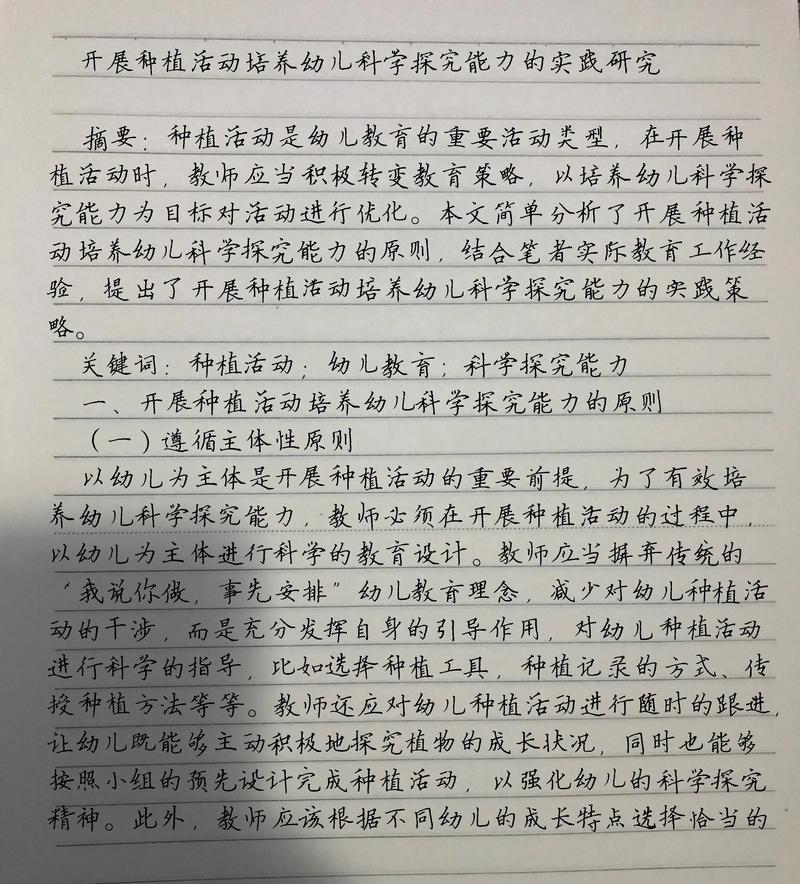 开展种植活动培养幼儿科学探究能力的实践研究
摘要：种植活动是幼儿教育的重要活动类型，在开展种
植活动时，教师应当积极转变教育策略，以培养幼儿科学探
究能力为目标对活动进行优化。本文简单分析了开展种植活
动培养幼儿科学探究能力的原则，结合笔者实际教育工作经
验，提出了开展种植活动培养幼儿科学探究能力的实践策
略。
关键词：种植活动；幼儿教育；科学探究能力
一、开展种植活动培养幼儿科学探究能力的原则
（一）遵循主体性原则
以幼儿为主体是开展种植活动的重要前提，为了有效培
养幼儿科学探究能力，教师必须在开展种植活动的过程中，
以幼儿为主体进行科学的教育设计。教师应当摒弃传统的
“我说你做，事先安排”幼儿教育理念，减少对幼儿种植活
动的干涉，而是充分发挥自身的引导作用，对幼儿种植活动
进行科学的指导，比如选择种植工具，种植记录的方式、传
授种植方法等等。教师还应对幼儿种植活动进行随时的跟进，
让幼儿既能够主动积极地探究植物的成长状况，同时也能够
按照小组的预先设计完成种植活动，以强化幼儿的科学探究
精神。此外，教师应该根据不同幼儿的成长特点选择恰当的